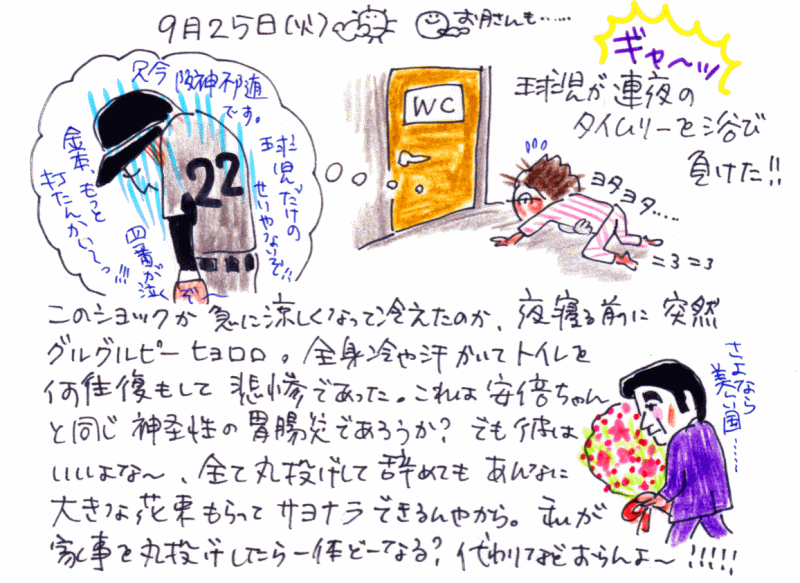 9月25日(火)
お月さんも……
ギャ〜ッ
球児が連夜の
タイムリーを浴び
負けた!!
只今阪神不調
です。
金本、もっと
打たんかい〜っ!!!
四番が泣くぞ〜
22
球児だけの
せいやないぞ!!
WC
ヨタヨタ……
=3 =3
このショックか 急に涼しくなって冷えたのか、夜寝る前に 突然
グルグルピーヒョロロ。全身冷や汗かいてトイレを
何往復もして 悲惨であった。これは 安倍ちゃん
と同じ 神経性の胃腸炎であろうか? でも彼は
いいよな〜、全て丸投げして辞めても あんなに
大きな花束もらって サヨナラできるんやから。私が
家事を丸投げしたら一体どーなる? 代わりなどおらんよ〜!!!!!
さよなら
美しい国……